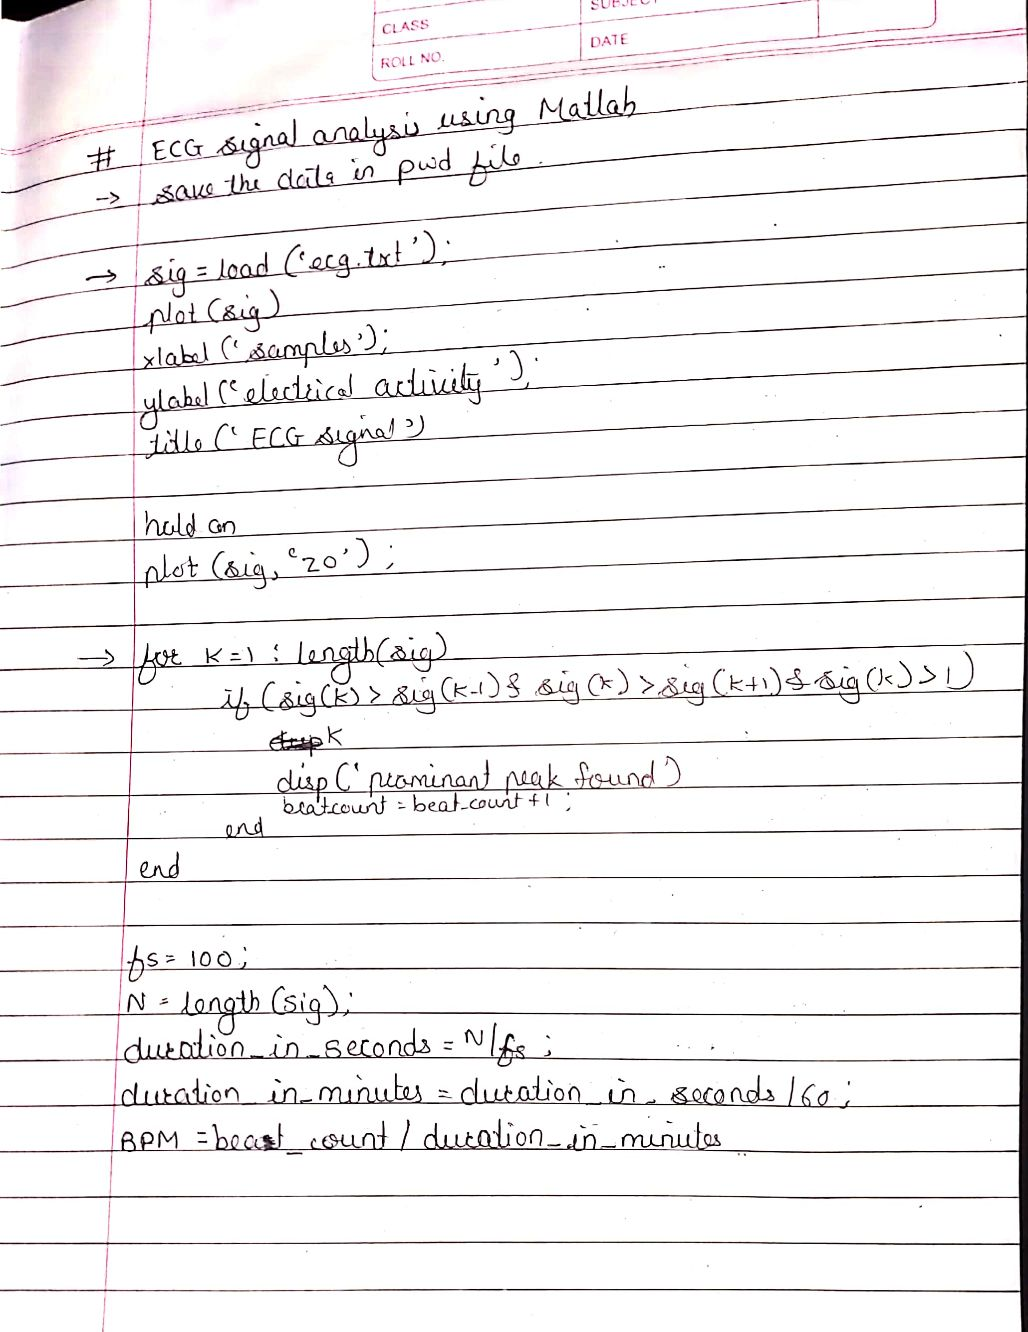 SUBJECT
CLASS
DATE
ROLL NO.
# ECG signal analysis using Matlab
→ save the data in pwd file.
→ sig = load ('ecg.txt');
plot (sig)
xlabel ('samples');
ylabel ('electrical activity');
title ('ECG signal')
hold on
plot (sig, 'ro');
→ for k=1 : length(sig)
if (sig(k) > sig(k-1) & sig(k) > sig(k+1) & sig(k) > 1)
k
disp ('prominant peak found')
beatcount = beat_count +1 ;
end
end
fs = 100;
N = length (sig);
duration_in_seconds = N/fs ;
duration_in_minutes = duration_in_seconds /60 ;
BPM = beat_count / duration_in_minutes